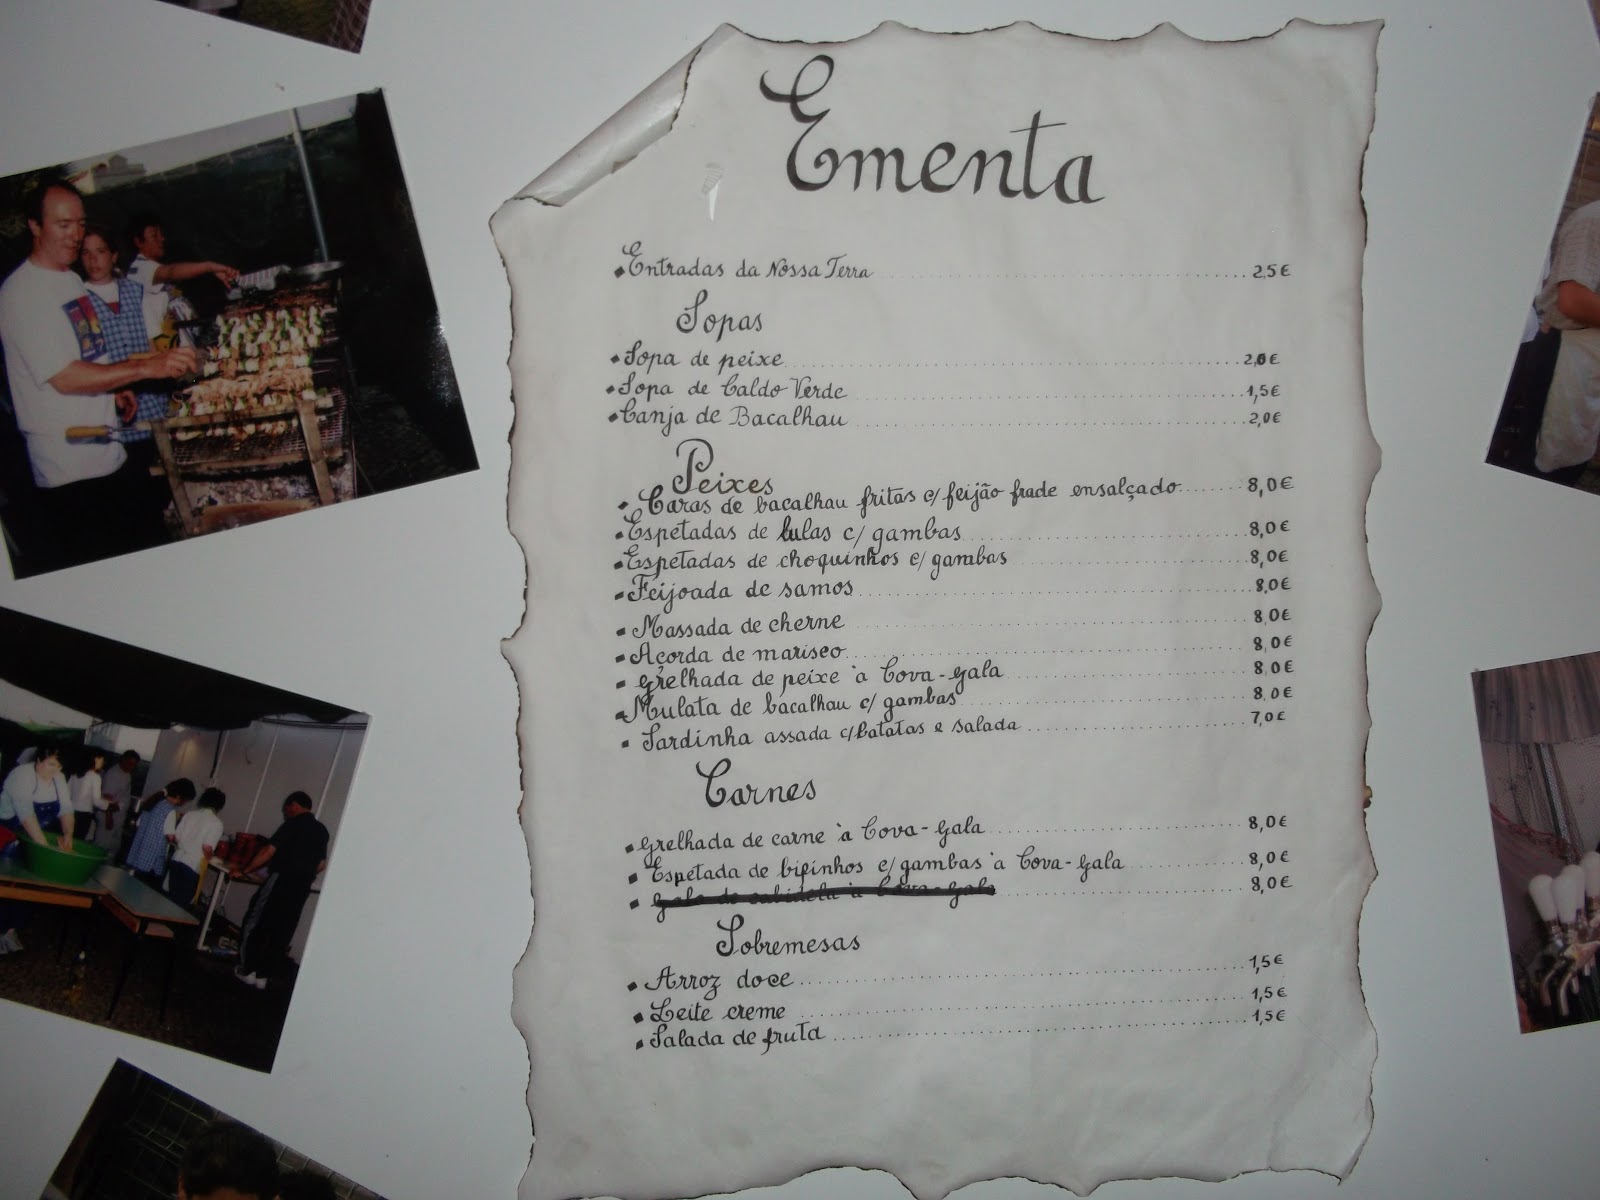 Ementa
Entradas da Nossa Terra 2,5€
Sopas
Sopa de peixe 2,0€
Sopa de Caldo Verde 1,5€
Canja de Bacalhau 2,0€
Peixes
Caras de bacalhau fritas c/ feijão frade ensalçado 8,0€
Espetadas de lulas c/ gambas 8,0€
Espetadas de choquinhos c/ gambas 8,0€
Feijoada de samos 8,0€
Massada de cherne 8,0€
Açorda de marisco 8,0€
Grelhada de peixe à Cova-Gala 8,0€
Mulata de bacalhau c/ gambas 8,0€
Sardinha assada c/ batatas e salada 7,0€
Carnes
Grelhada de carne à Cova-Gala 8,0€
Espetada de bifinhos c/ gambas à Cova-Gala 8,0€
de cabidela à Cova-Gala 8,0€
Sobremesas
Arroz doce 1,5€
Leite creme 1,5€
Salada de fruta 1,5€